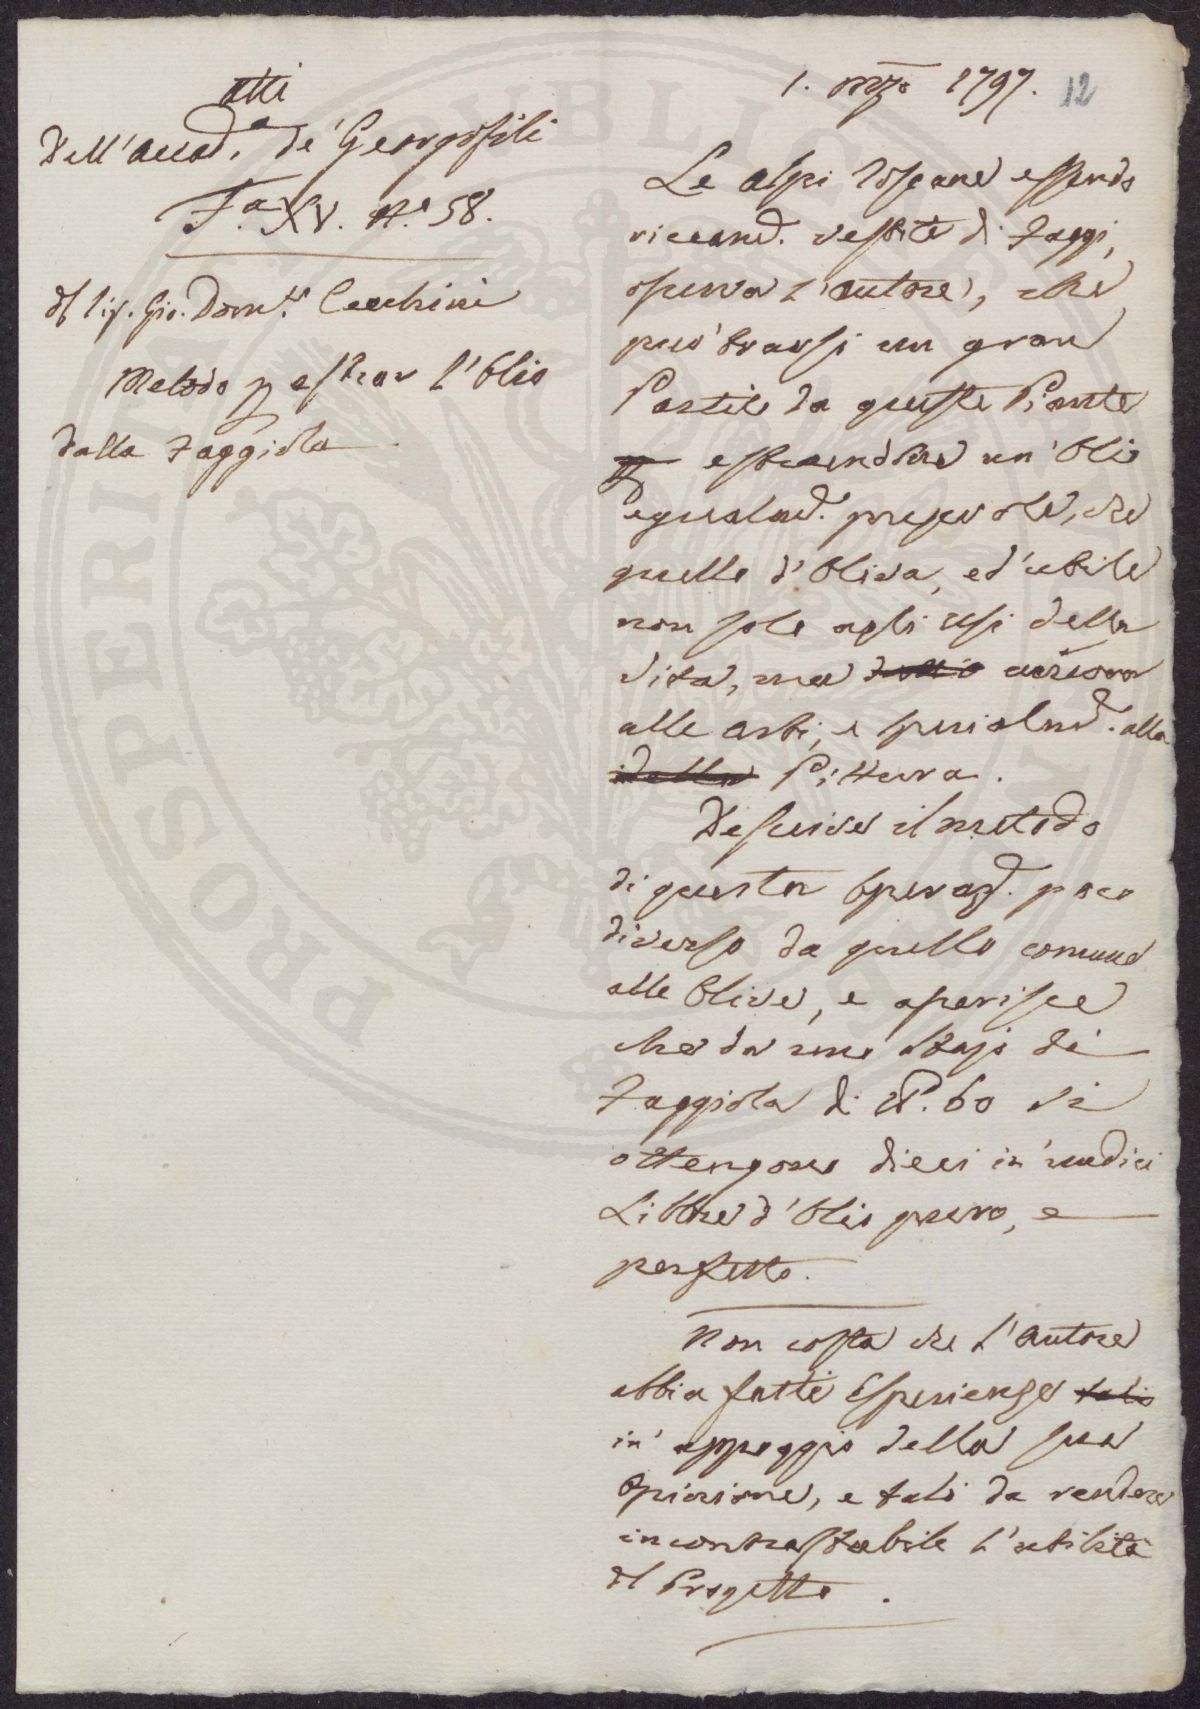 Atti
Dell'Accad.a de' Georgofili
F.a XV. N.o 58.
del Sig. Gio. Dom.co Cecchini
Metodo p estrar l'Olio
dalla Faggiola
1. Mzo 1797. 12
Le Alpi Toscane essendo
riccam. vestite di Faggi,
opina l'Autore, che
può trarsi un gran
Partito da queste Piante
estraendone un'Olio
egualm. pregevole, che
quello d'Oliva, ed utile
non solo agli usi della
vita, ma ancora
alle Arti, e specialm. alla
della Pittura.
Descrive il metodo
di questa Operaz. poco
diverso da quello comune
alle Olive, e asserisce
che da uno Stajo di
Faggiola di lb. 60 si
ottengono dieci in undici
Libbre d'Olio puro, e
perfetto.
Non costa che l'Autore
abbia fatte Esperienze
in appoggio della sua
Opinione, e tali da rendere
incontrastabile l'utilità
del Progetto.
PUBLICAE
PROSPERITA